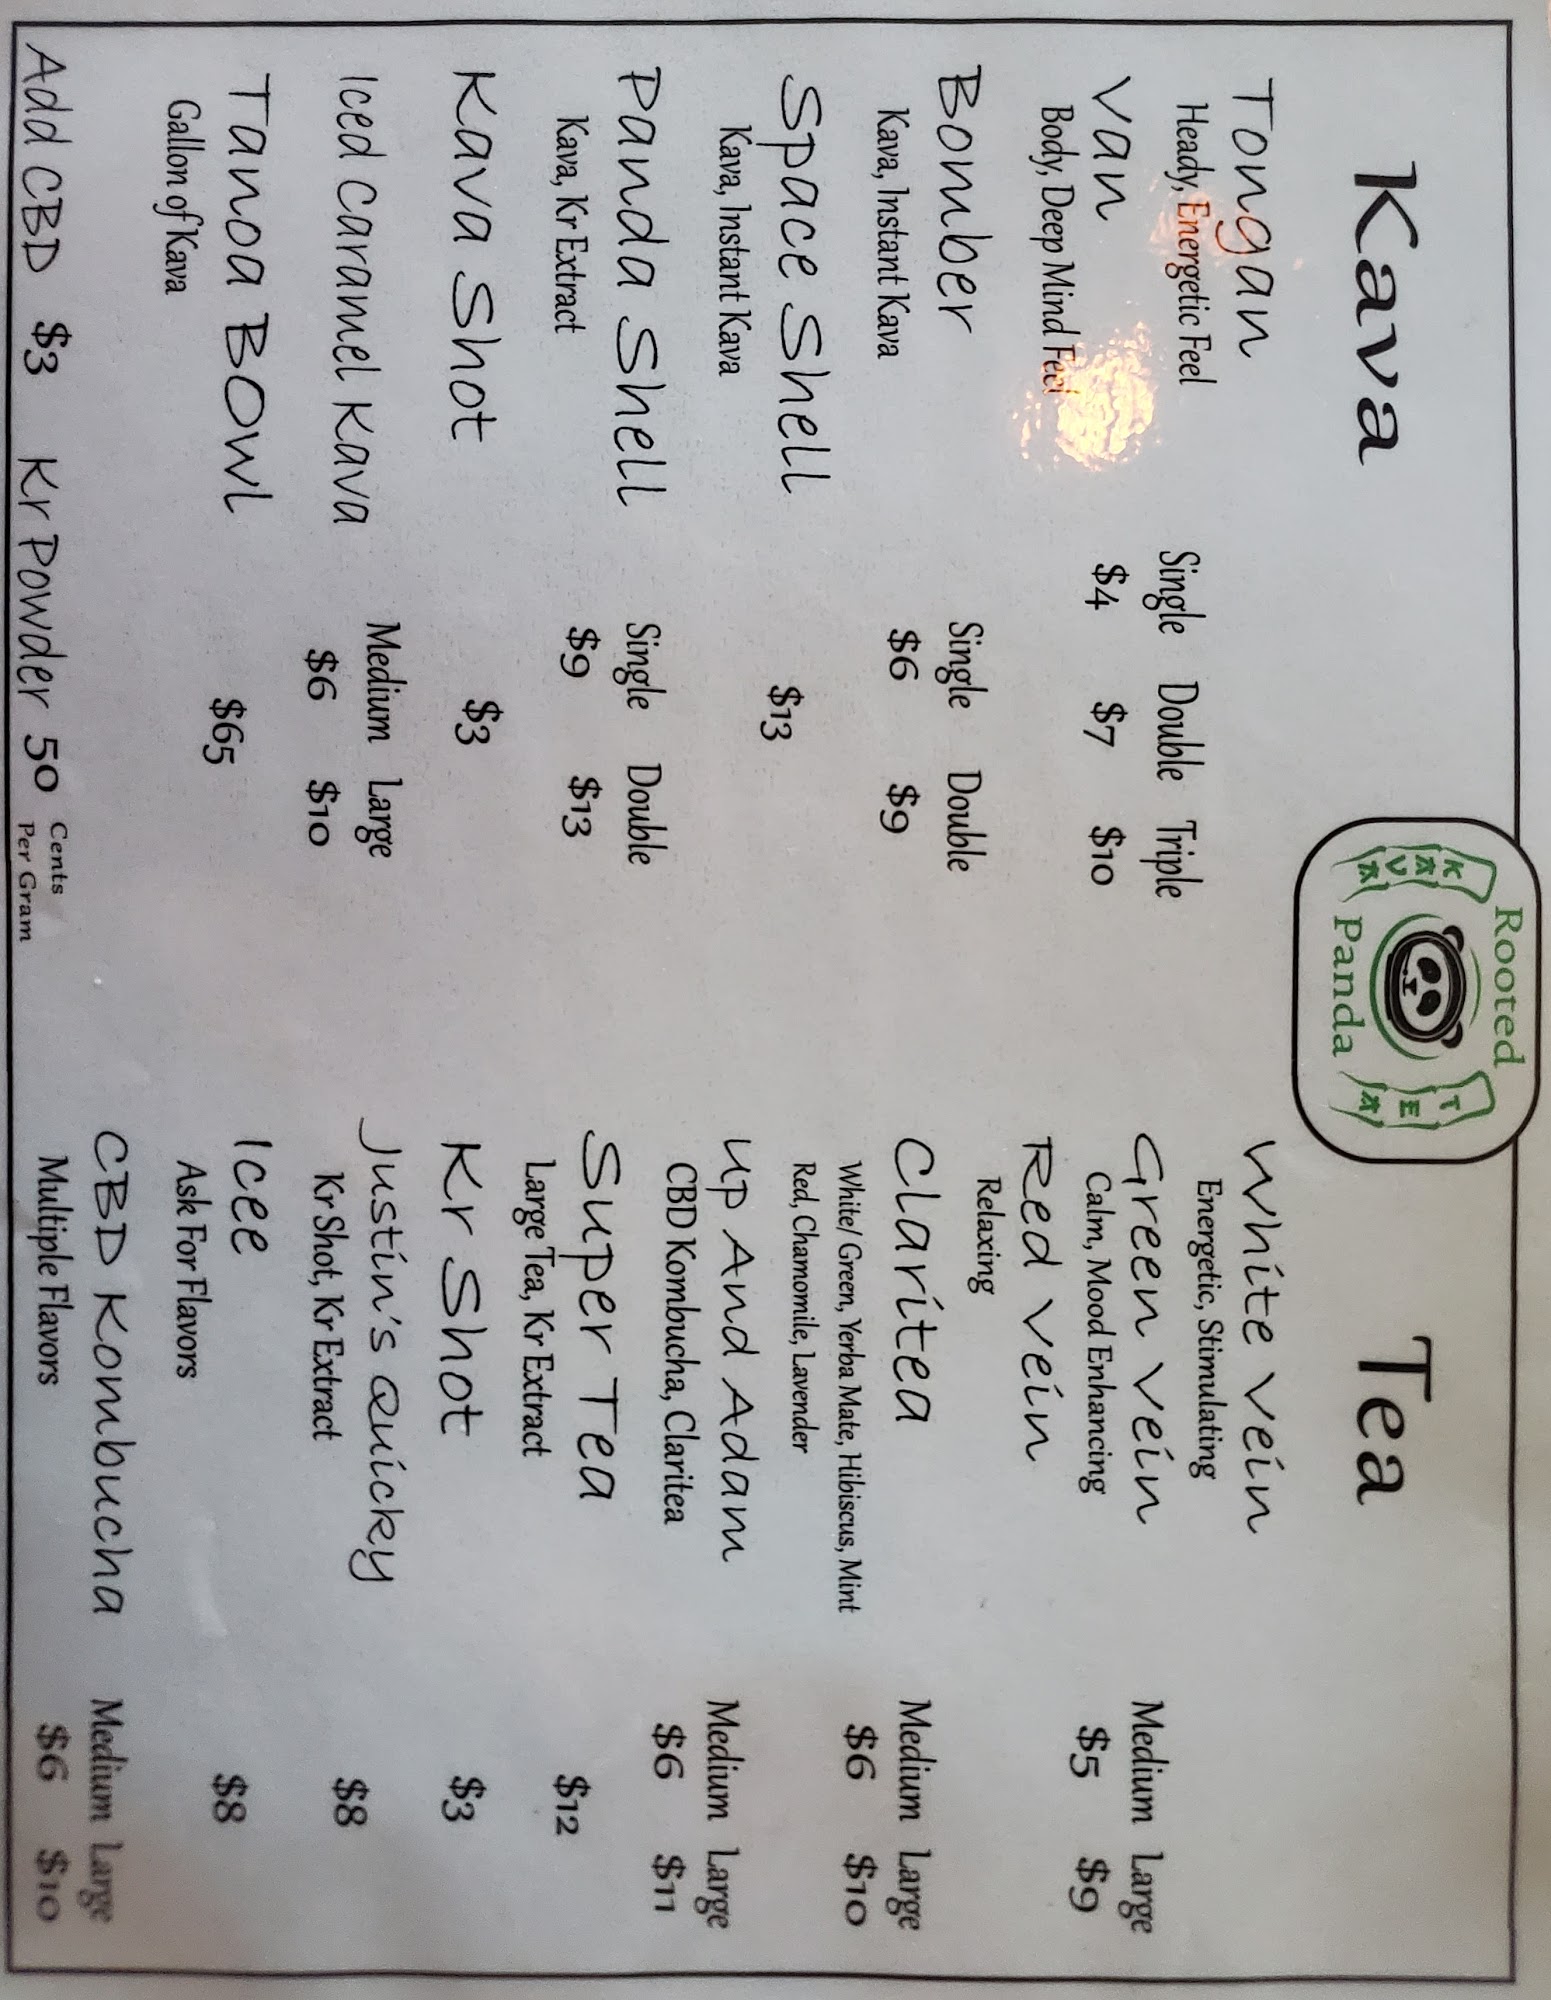 Rooted
KAVA
TEA
Panda
Kava
Tongan
Heady, Energetic Feel
Single Double Triple
Van
$4 $7 $10
Body, Deep Mind Feel
Bomber
Single Double
Kava, Instant Kava
$6 $9
Space Shell
$13
Kava, Instant Kava
Panda Shell
Single Double
Kava, Kr Extract
$9 $13
Kava Shot
$3
Iced Caramel Kava
Medium Large
$6 $10
Tanoa Bowl
$65
Gallon of Kava
Add CBD $3 Kr Powder 50 Cents
Per Gram
Tea
White Vein
Energetic, Stimulating
Green Vein
Medium Large
Calm, Mood Enhancing
$5 $9
Red Vein
Relaxing
Claritea
Medium Large
White/ Green, Yerba Mate, Hibiscus, Mint
$6 $10
Red, Chamomile, Lavender
Up And Adam
Medium Large
CBD Kombucha, Claritea
$6 $11
Super Tea
$12
Large Tea, Kr Extract
Kr Shot
$3
Justin's Quicky
$8
Kr Shot, Kr Extract
Icee
$8
Ask For Flavors
CBD Kombucha
Medium Large
Multiple Flavors
$6 $10